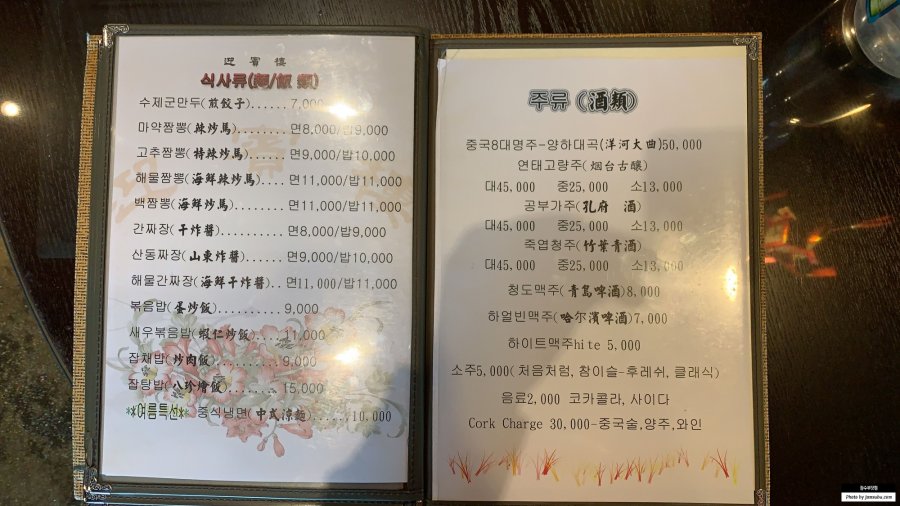 迎賓樓
식사류(麵/飯 類)
수제군만두(煎餃子)...... 7,000
마약짬뽕(辣炒馬)........ 면8,000/밥9,000
고추짬뽕(特辣炒馬)..... 면9,000/밥10,000
해물짬뽕(海鮮辣炒馬).... 면11,000/밥11,000
백짬뽕(海鮮炒馬)....... 면11,000/밥11,000
간짜장(干炸醬).......... 면8,000/밥9,000
산동짜장(山東炸醬)...... 면9,000/밥10,000
해물간짜장(海鮮干炸醬).. 면11,000/밥11,000
볶음밥(蛋炒飯).......... 9,000
새우볶음밥(蝦仁炒飯).... 11,000
잡채밥(炒肉飯)......... 9,000
잡탕밥(八珍燴飯)....... 15,000
**여름특선** 중식냉면(中式涼麵)...... 10,000
주류 (酒類)
중국8대명주-양하대곡(洋河大曲)50,000
연태고량주(烟台古釀)
대45,000 중25,000 소13,000
공부가주(孔府 酒)
대45,000 중25,000 소13,000
죽엽청주(竹葉青酒)
대45,000 중25,000 소13,000
청도맥주(青島啤酒)8,000
하얼빈맥주(哈尔濱啤酒)7,000
하이트맥주hite 5.000
소주5,000(처음처럼, 참이슬-후레쉬, 클래식)
음료2,000 코카콜라, 사이다
Cork Charge 30,000-중국술,양주,와인
Photo by jansuhu.com